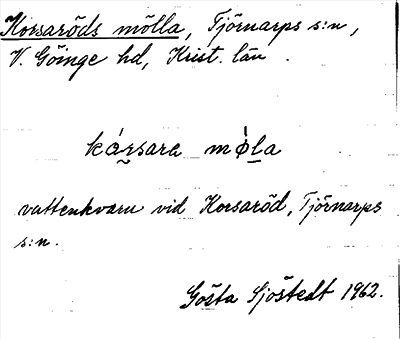 Korsaröds mölla, Tjörnarps s:n,
V. Göinge hd, Krist. län.
kársara mø̀la
vattenkvarn vid Korsaröd, Tjörnarps
s:n.
Gösta Sjöstedt 1962.